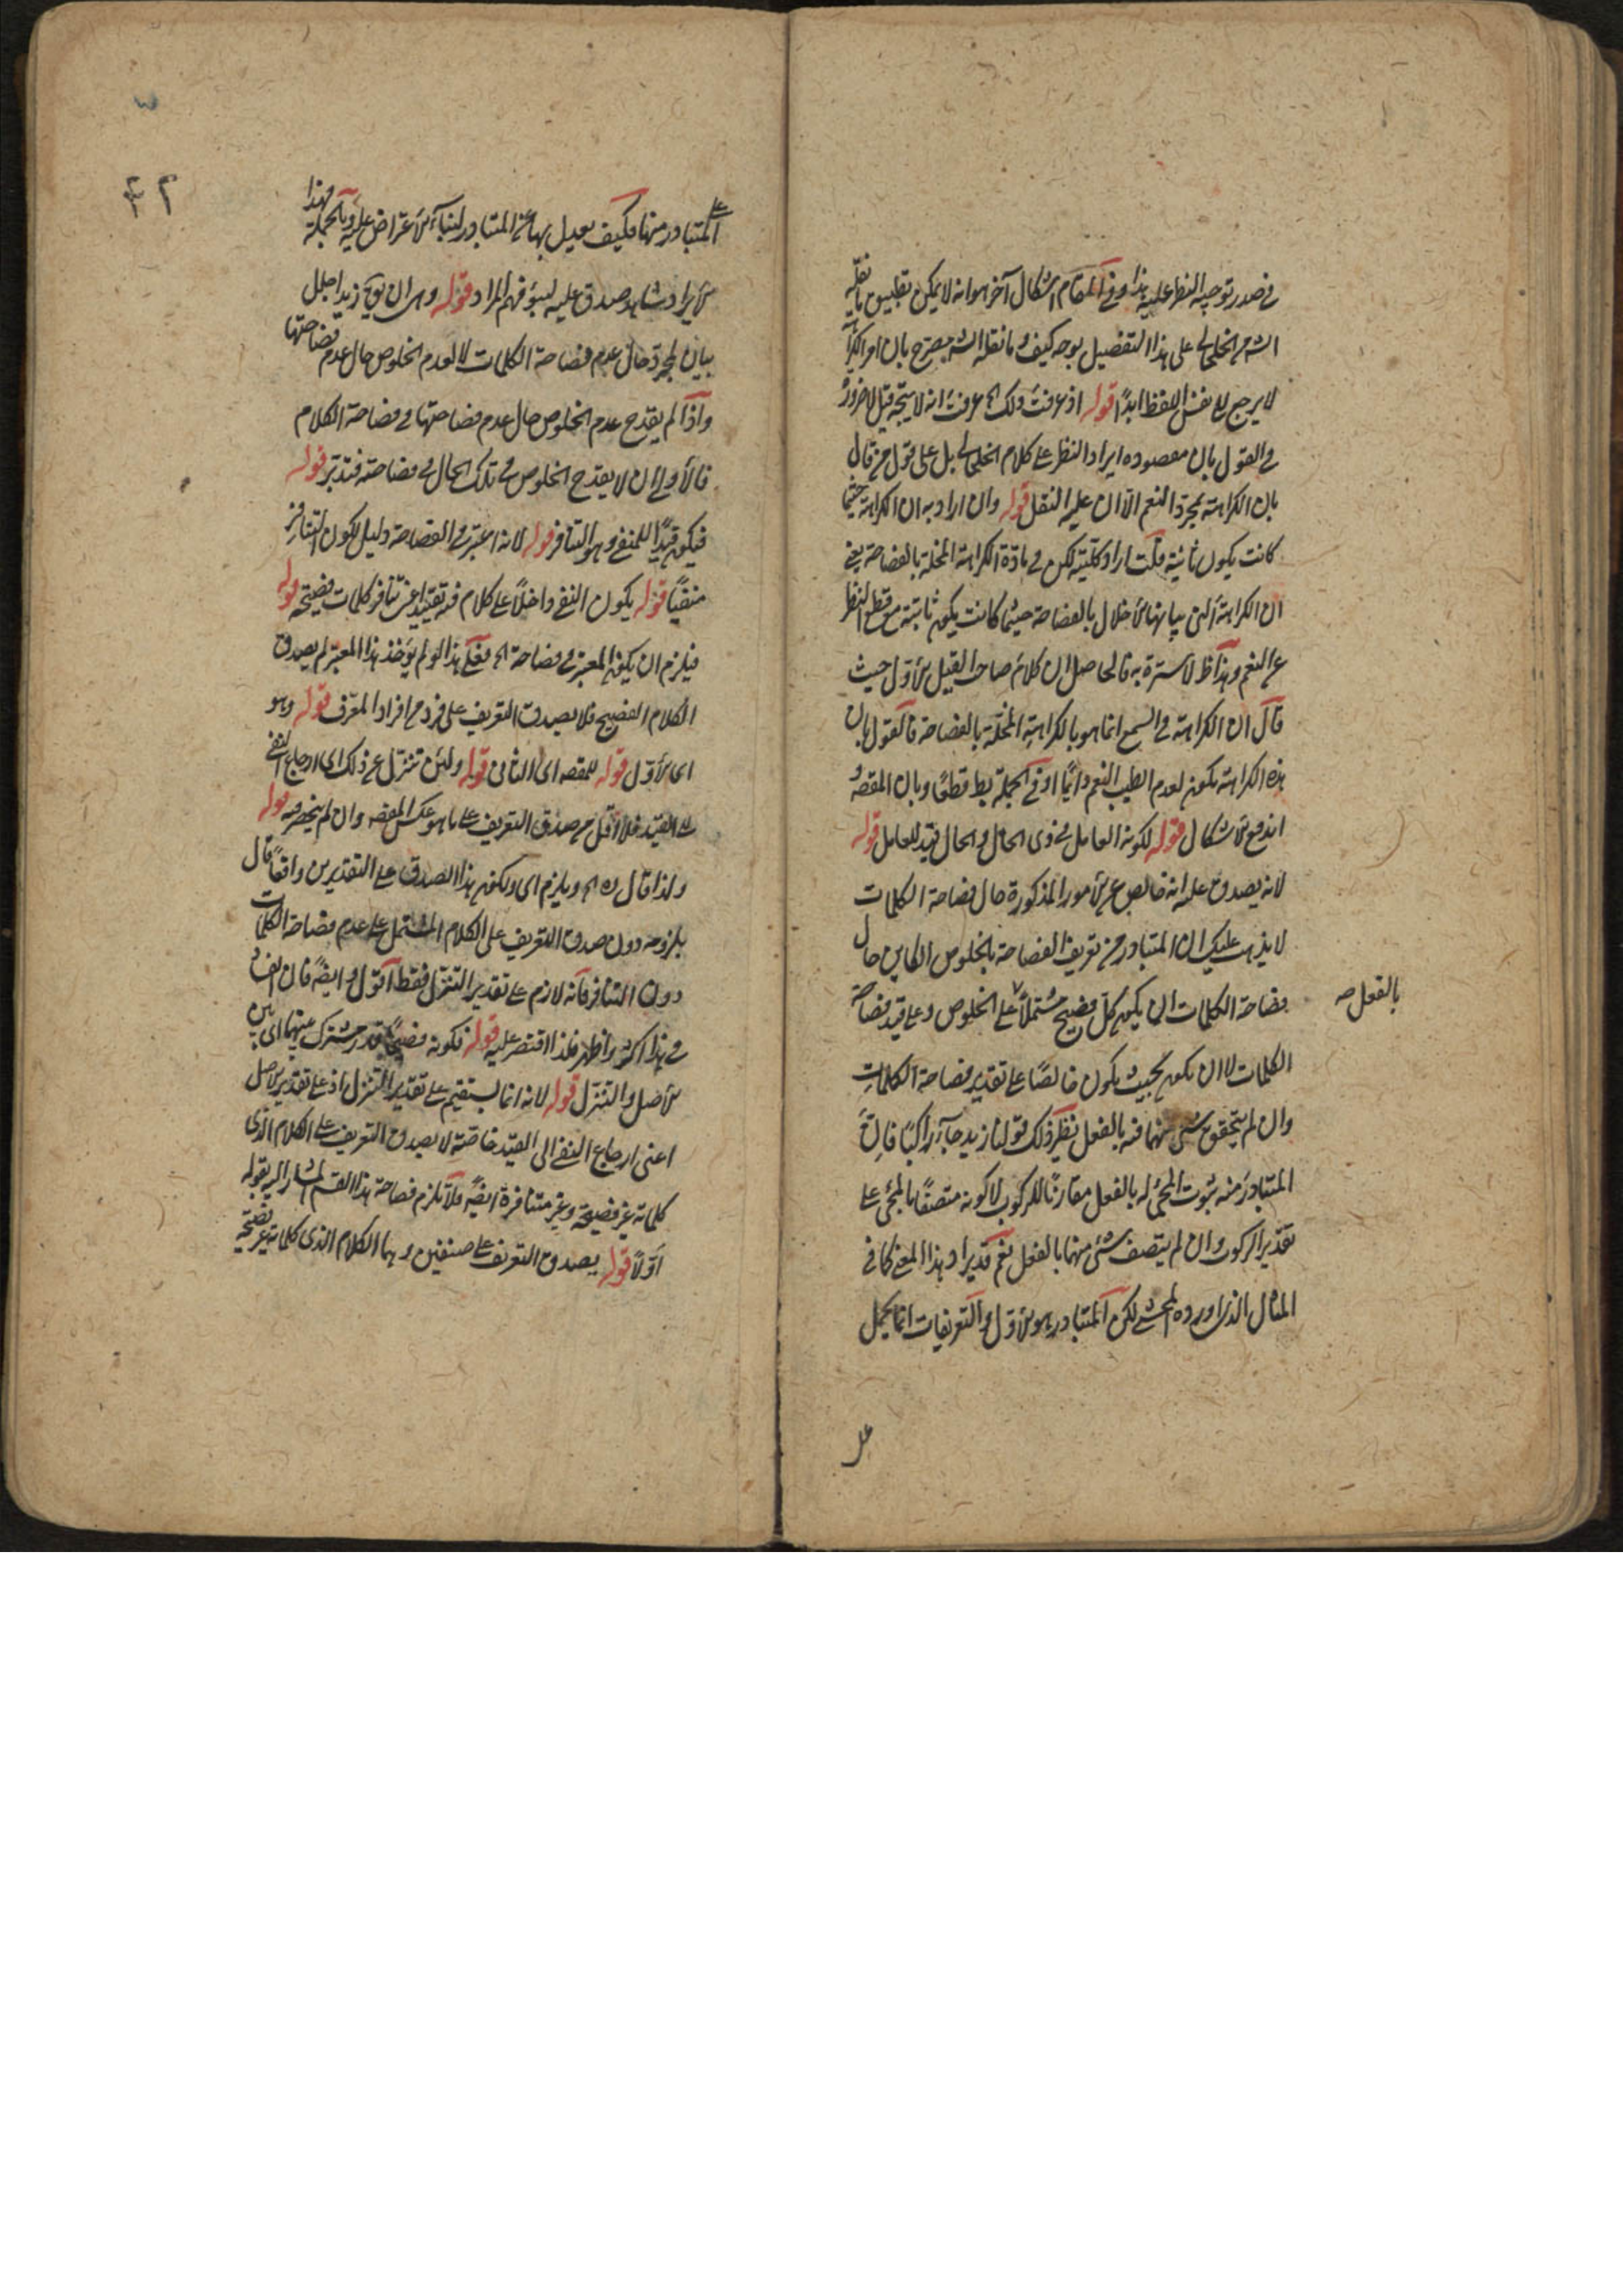 في صدر توجيه النظر عليه هذا وفي المقام اشكال آخر هو انه لا يمكن تطبيق ما نقله
الش من الخلخالي على هذا التفصيل بوجه كيف وما نقله الش مصرح بان امر الكراهة
لا يرجع الى نفس اللفظ ابدا قوله اذ عرفت ذلك الخ عرفت انه لا يتجه قيل لا ضرورة
في القول بان مقصوده ايراد النظر على كلام الخلخالي بل على قول من قال
بان الكراهة لمجرد النغم الا ان عليه النقل قوله وان اراد به ان الكراهة حيثما
كانت يكون ثابتة قلت اراد كليته لكن في مادة الكراهة المخلة بالفصاحة يعني
ان الكراهة التي بها الاخلال بالفصاحة حيثما كانت يكون ثابتة مع قطع النظر
عن النغم وهذا ظ لا سترة به فالحاصل ان كلام صاحب القيل الاول حيث
قال ان الكراهة في السمع انما هو بالكراهة المخلة بالفصاحة فالقول بان
هذه الكراهة تكون لعدم الطيب النغم دائما او في الجملة بط قطعا وبان المقصود
اندفع الاشكال قوله لكونه العامل في ذي الحال والحال قيد للعامل قوله
لانه يصدق عليه انه خالص عن الامور المذكورة حال فصاحة الكلمات
لا يذهب عليك ان المتبادر من تعريف الفصاحة بالخلوص الكاين حال
فصاحة الكلمات ان يكون كل فصيح مشتملا على الخلوص وعلى قيد فصاحة
بالفعل صه
الكلمات لا ان يكون بحيث يكون خالصا على تقدير فصاحة الكلمات
وان لم يتحقق شئ منهما فيه بالفعل نظير ذلك قولنا زيد جاء راكبا فان
المتبادر منه ثبوت المجئ له بالفعل مقارنا للركوب لا كونه متصفا بالمجئ على
تقدير الركوب وان لم يتصف شئ منهما بالفعل نعم قد يراد هذا المعنى كما في
المثال الذي اورده المحشي لكن المتبادر هو الاول والتعريفات انما يحمل
على
٤٢
على المتبادر منها فكيف يعدل بها عن المتبادر لبناء الاعتراض عليه وبالجملة فهذا
الايراد شاهد صدق عليه لسوء فهم المراد قوله وهى ان يؤيح زيد اجلل
بيان لمجرد حال عدم فصاحة الكلمات لا لعدم الخلوص حال عدم فصاحتها
واذا لم يقدح عدم الخلوص حال عدم فصاحتها في فصاحة الكلام
فالاولى ان لا يقدح الخلوص في تلك الحال في فصاحته فتدبر قوله
فيكون قيدا للمنفي وهو التنافر قوله لانه اعتبر في الفصاحة دليل لكون التنافر
منفيا قوله يكون النفي داخلا على كلام فيه تقييد اعني تنافر كلمات فصيحة قوله
فيلزم ان يكون المعتبر في فصاحة الخ فعلى هذا لو لم يؤخذ هذا المعتبر لم يصدق
الكلام الفصيح فلا يصدق التعريف على فرد من افراد المعرف قوله وهو
اى الاول قوله للمقصه اى الثاني قوله ولئن تنزل عن ذلك اى ارجاع النفي
الى القيد فلا اقل من صدق التعريف على ما هو عكس المقصه وان لم ينحصر فيه قوله
ولذا قال ره الخ ويلزم اى ولكون هذا الصدق على التقديرين واقعا قال
بلزومه دون صدق التعريف على الكلام المشتمل على عدم فصاحة الكلمات
دون التنافر فانه لازم على تقدير التنزل فقط اقول وايضا فان الفساد
في هذا اكثر واظهر فلذا اقتصر عليه قوله فكونه فصيحا قدر مشترك بينهما اى بين
الاصل والتنزل قوله لانه انما يستقيم على تقدير التنزل اذ على تقدير الاصل
اعنى ارجاع النفي الى القيد خاصة لا يصدق التعريف على الكلام الذي
كلماته غير فصيحة وغير متنافرة ايضا فلا تلزم فصاحة هذا القسم المشار اليه بقوله
اولا قوله يصدق التعريف على صنفين وهما الكلام الذي كلماته غير فصيحة